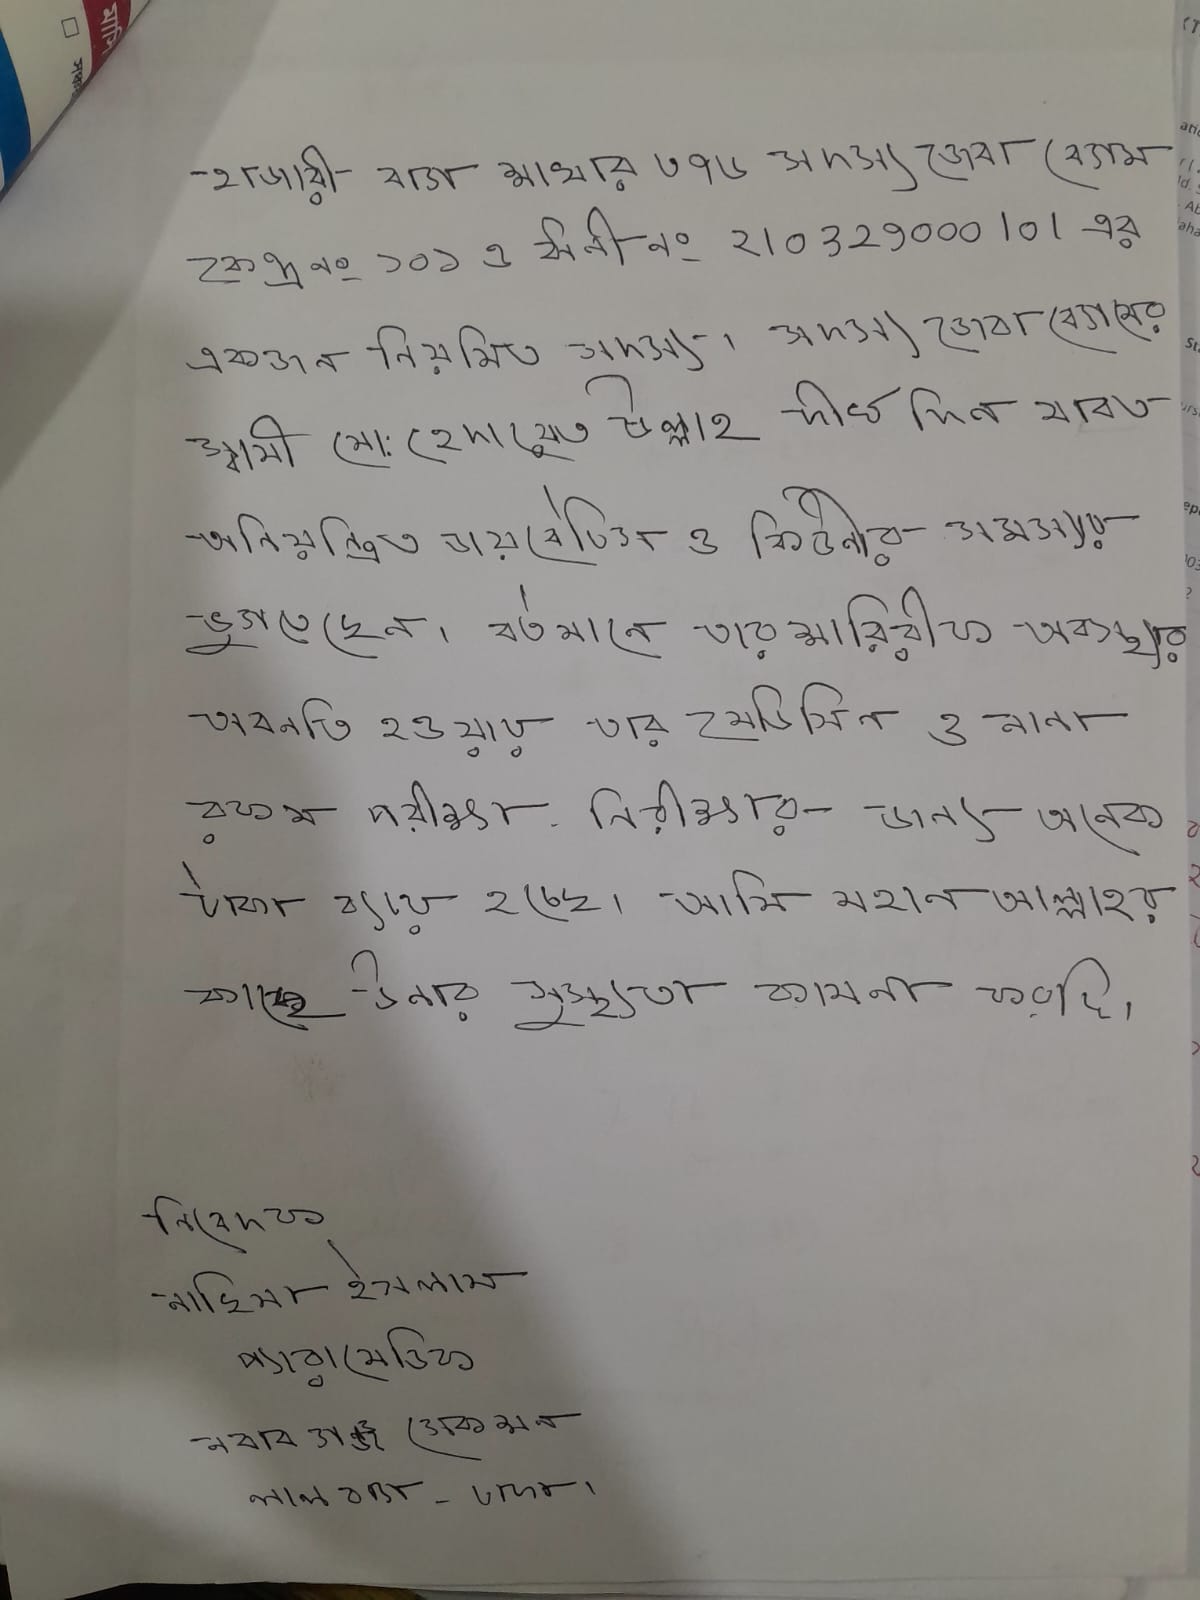 হাজারী বাগ শাখার ৩৭৬ সদস্য জোবা বেগম
কেন্দ্র নং ১০১ ও সিনী নং 210329000101 এর
একজন নিয়মিত সদস্য। সদস্য জোবা বেগমের
স্বামী মো: হেদায়েত উল্লাহ দীর্ঘ দিন যাবত
অনিয়ন্ত্রিত ডায়বেটিস ও কিডনীর সমস্যায়
ভুগতেছেন। বর্তমানে তার শারিরীক অবস্থার
অবনতি হওয়ায় তার মেডিসিন ও নানা
রকম পরীক্ষা নিরীক্ষার জন্য অনেক
টাকা ব্যায় হচ্ছে। আমি মহান আল্লাহর
কাছে উনার সুস্থ্যতা কামনা করছি।
নিবেদক
নাছিমা ইসলাম
প্যারামেডিক
নবাবগঞ্জ সেকশন
লালবাগ - ঢাকা।